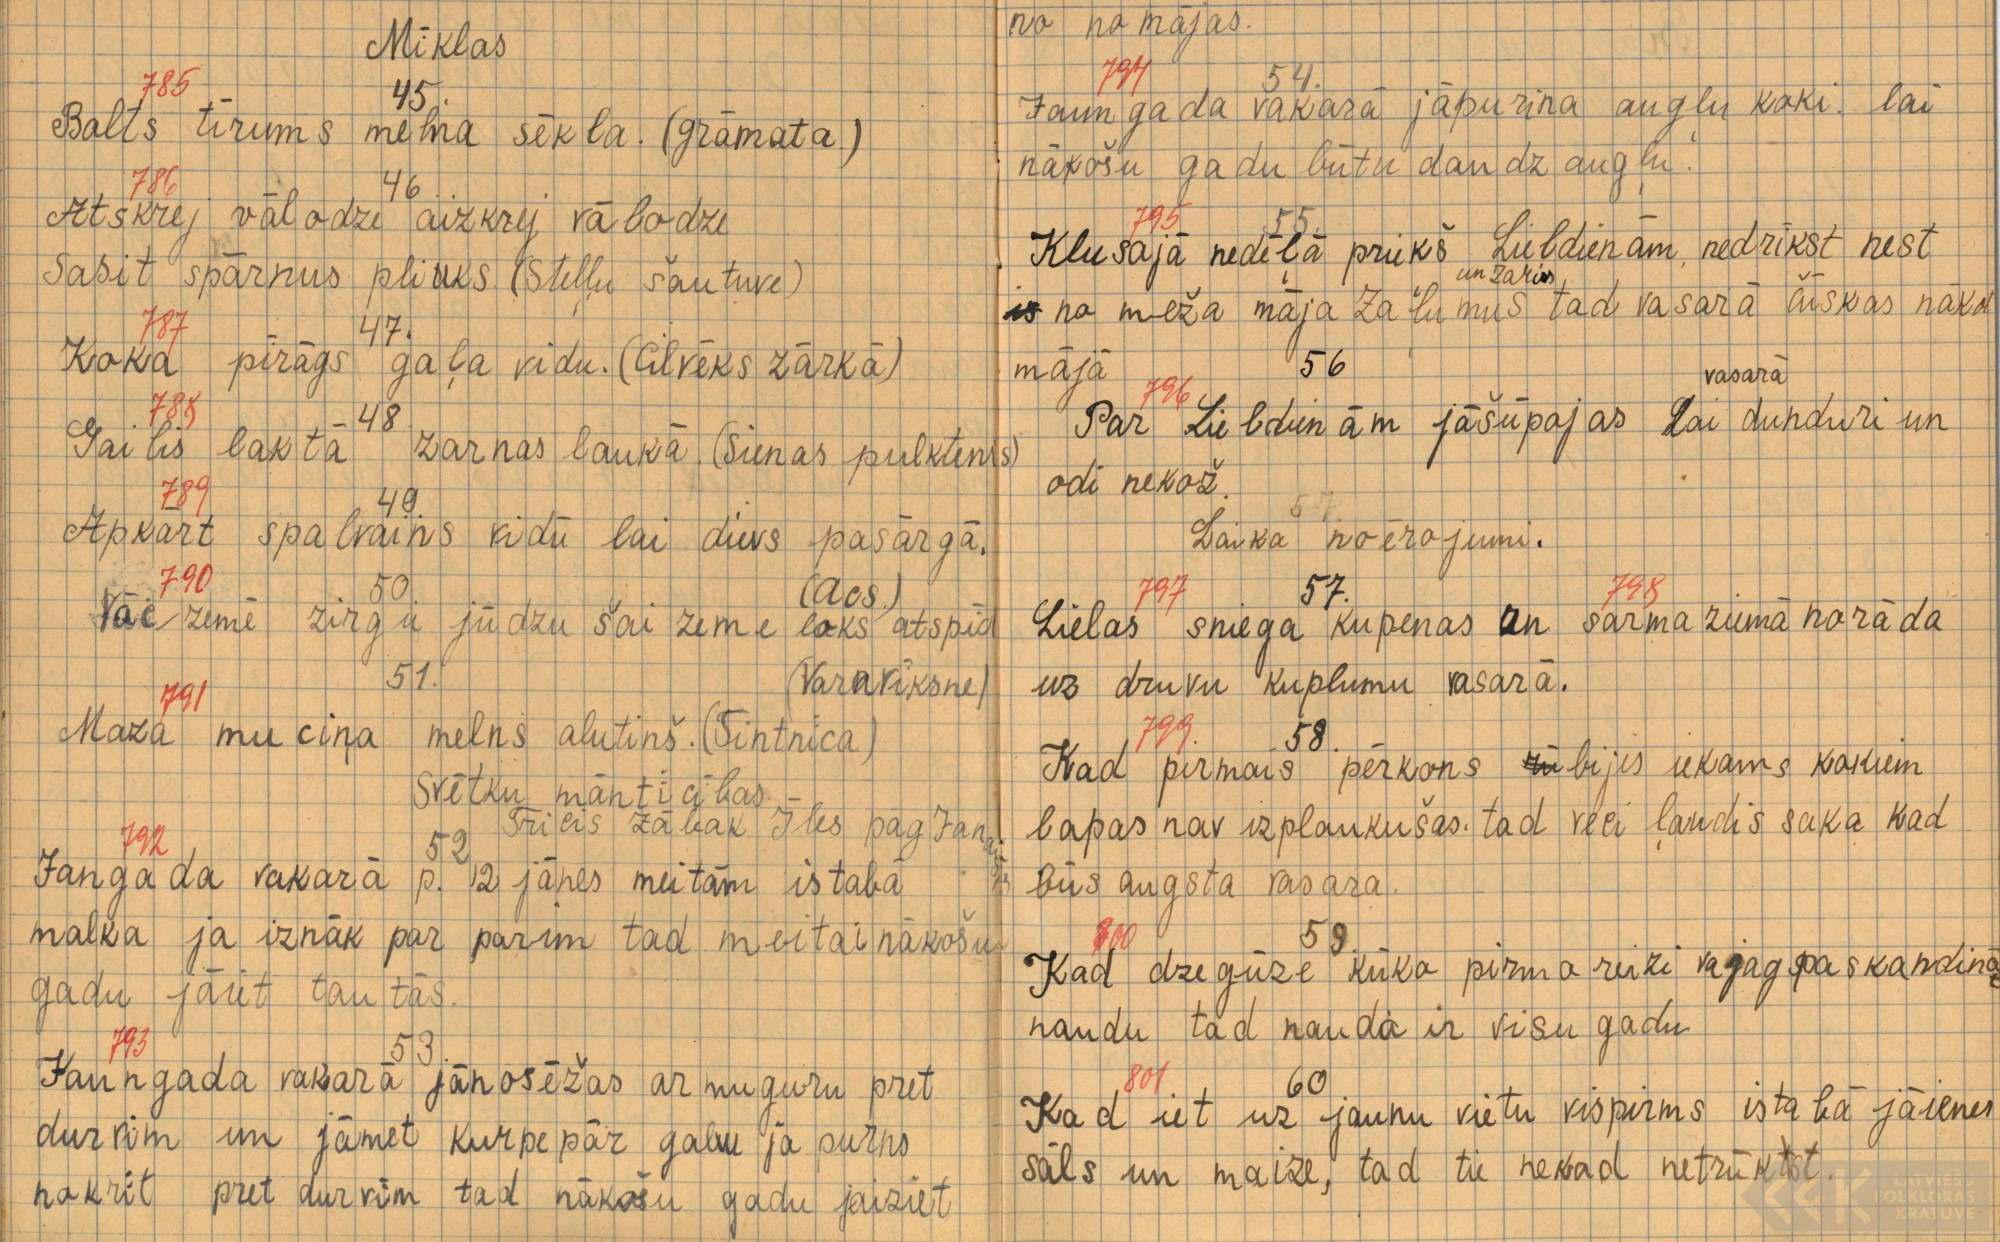 Mīklas
785
45.
Balts tīrums melna sēkla. (grāmata)
786
46
Atskrej vālodze aizkrej vālodze
Sasit spārnus pliuks (Steļļu šautuve)
787
47.
Koka pīrāgs gaļa vidu. (Cilvēks zārkā)
788
48
Gailis laktā zarnas laukā. (Sienas pulktenis)
789
49
Apkārt spalvains vidū lai dievs pasārgā.
(Acs.)
790
50
Vāc zemē zirgu jūdzu šai zeme loks atspīd
(Varavīksne)
791
51.
Maza muciņa melns alutiņš. (Tintnīca)
Svētku mānticības
Tricis Zābak Īles pag Jan
792
52
Jangada vakarā p. 12 jānes meitām istabā
malka ja iznāk par parim tad meitai nākošu
gadu jāiet tautās.
793
53.
Jaungada vakarā jānosēžas ar muguru pret
durvim un jāmet kurpe pār galvu ja purns
nokrīt pret durvīm tad nākošu gadu jaiziet
no no mājas.
794
54.
Jaungada vakarā jāpurina augļu koki. lai
nākošu gadu būtu daudz augļu.
795
55.
Klusajā nedēļā priekš Lieldienām, nedrīkst nest
un zarus
no meža māja Zaļumus tad vasarā čūskas nāk
mājā
56
796
vasarā
Par Lieldienām jāšūpojas Lai dunduri un
odi nekož.
57
Laika noērojumi.
797
57.
798
Lielas sniega kupenas un sarma ziemā norāda
uz druvu kuplumu vasarā.
799
58.
Kad pirmais pērkons bijis iekams kokiem
lapas nav izplaukušas. tad veci ļaudis saka kad
būs augsta vasara.
800
59.
Kad dzegūze kūko pirmo reizi vajag paskandināt
naudu tad nauda ir visu gadu
801
60
Kad iet uz jaunu vietu vispirms istabā jāienes
sāls un maize, tad tie nekad netrūkst.
LATVIEŠU
FOLKLORAS
KRATUVE